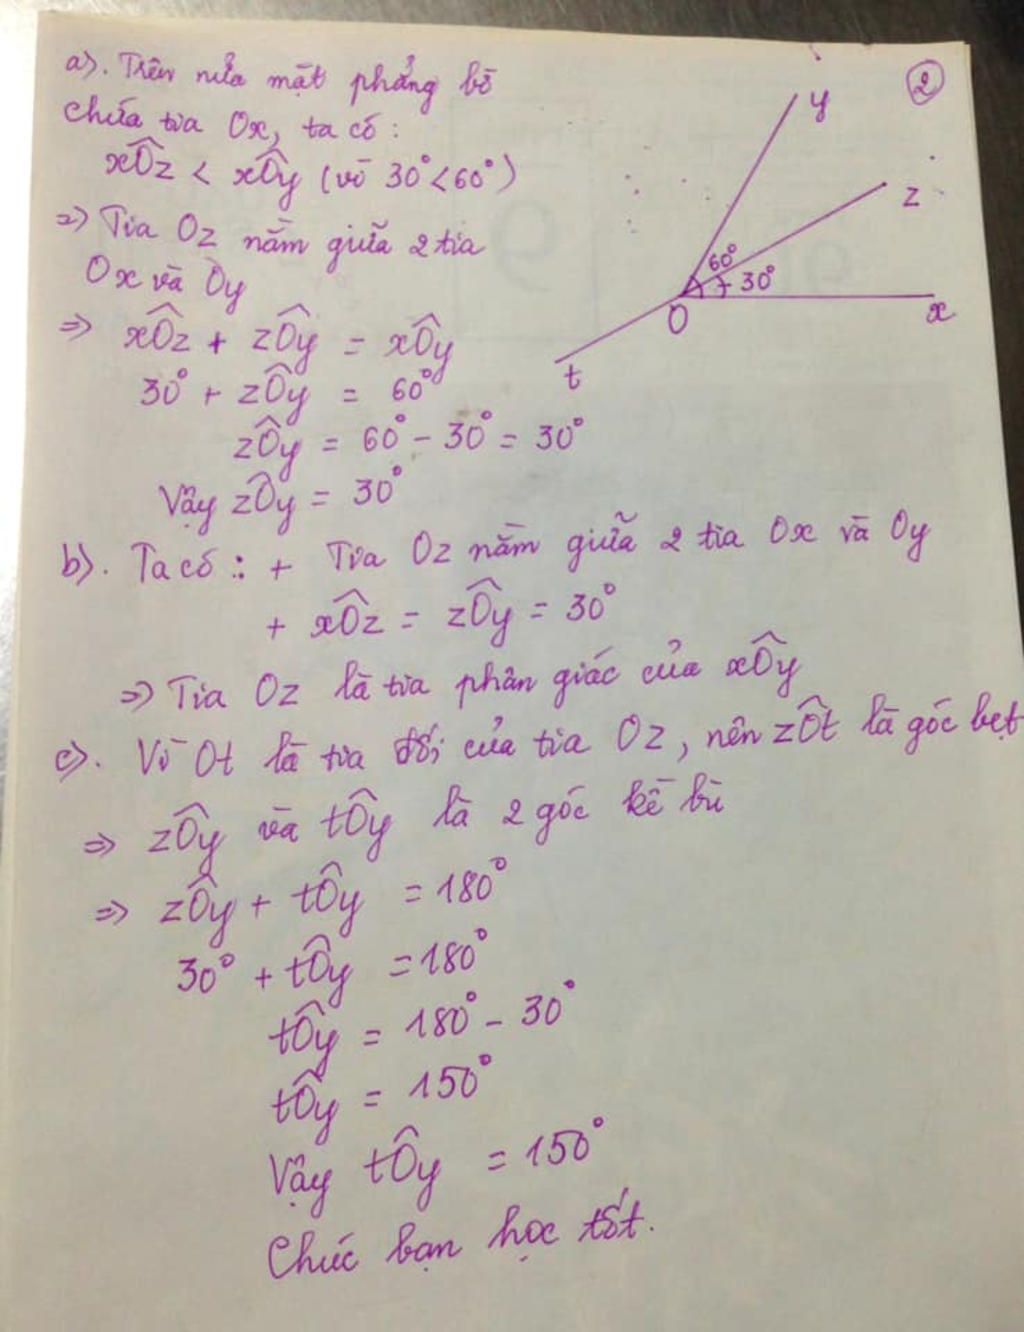 a). Trên nửa mặt phẳng bờ
chứa tia Ox, ta có:
xÔz < xÔy (vì 30° < 60°)
=> Tia Oz nằm giữa 2 tia
Ox và Oy
=> xÔz + zÔy = xÔy
30° + zÔy = 60°
zÔy = 60° - 30° = 30°
Vậy zÔy = 30°
b). Ta có: + Tia Oz nằm giữa 2 tia Ox và Oy
+ xÔz = zÔy = 30°
=> Tia Oz là tia phân giác của xÔy
c). Vì Ot là tia đối của tia Oz, nên zÔt là góc bẹt
=> zÔy và tÔy là 2 góc kề bù
=> zÔy + tÔy = 180°
30° + tÔy = 180°
tÔy = 180° - 30°
tÔy = 150°
Vậy tÔy = 150°
Chúc bạn học tốt.
2
y
z
60°
30°
O
x
t